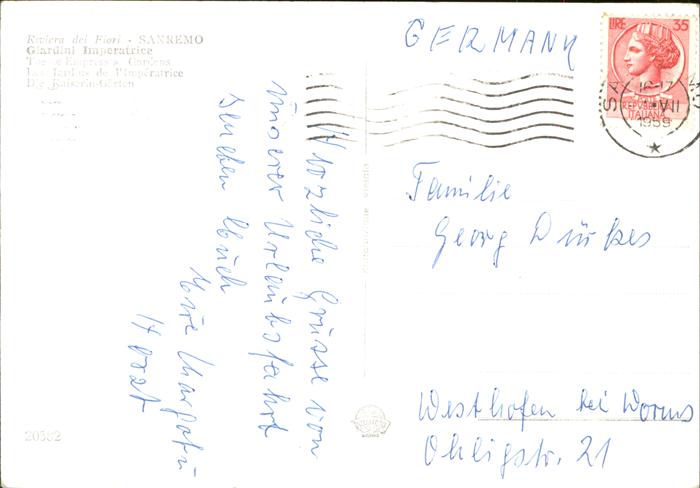 Riviera dei Fiori - SANREMO
Giardini Imperatrice
The Empress's Gardens
Les Jardins de l'Impératrice
Die Kaiserin-Gärten
GERMANY
LIRE 35
REPVBBLICA
ITALIANA
1959
Herzliche Grüsse von
unserer Urlaubsfahrt
senden Euch
Eure Margot u
Horst
Familie
Georg
Westhofen bei Worms
Ohligstr. 21
20552